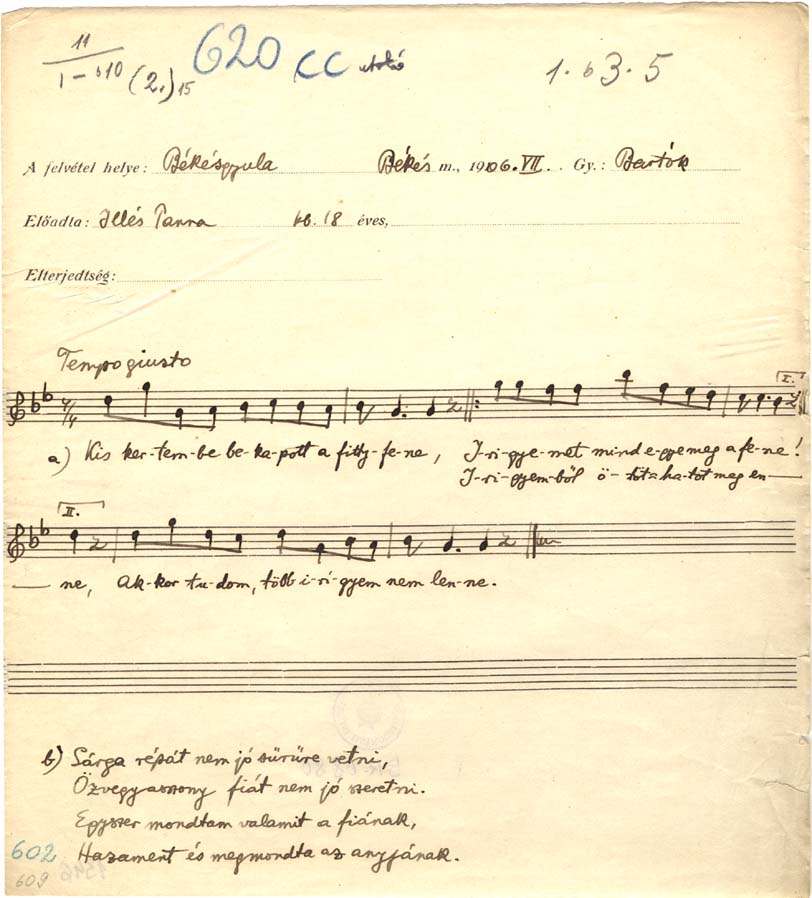 11
I – 610 (2.) 15 620 CC utolsó 1. b3. 5
A felvétel helye: Békésgyula Békés m., 1906. VII. Gy.: Bartók
Előadta: Illés Panna kb. 18 éves,
Elterjedtség:
Tempo giusto
4/4
I.
a) Kis ker-tem-be be-ka-pott a fity-fe-ne, I-ri-gye-met mind e-gye meg a fe-ne!
I-ri-gyem-ből ö-töt-ha-tot meg en-
II.
ne, Ak-kor tu-dom, több i-ri-gyem nem len-ne.
b) Sárga répát nem jó sürüre vetni,
Özvegyasszony fiát nem jó szeretni.
Egyszer mondtam valamit a fiának,
Hazament és megmondta az anyjának.
602
609